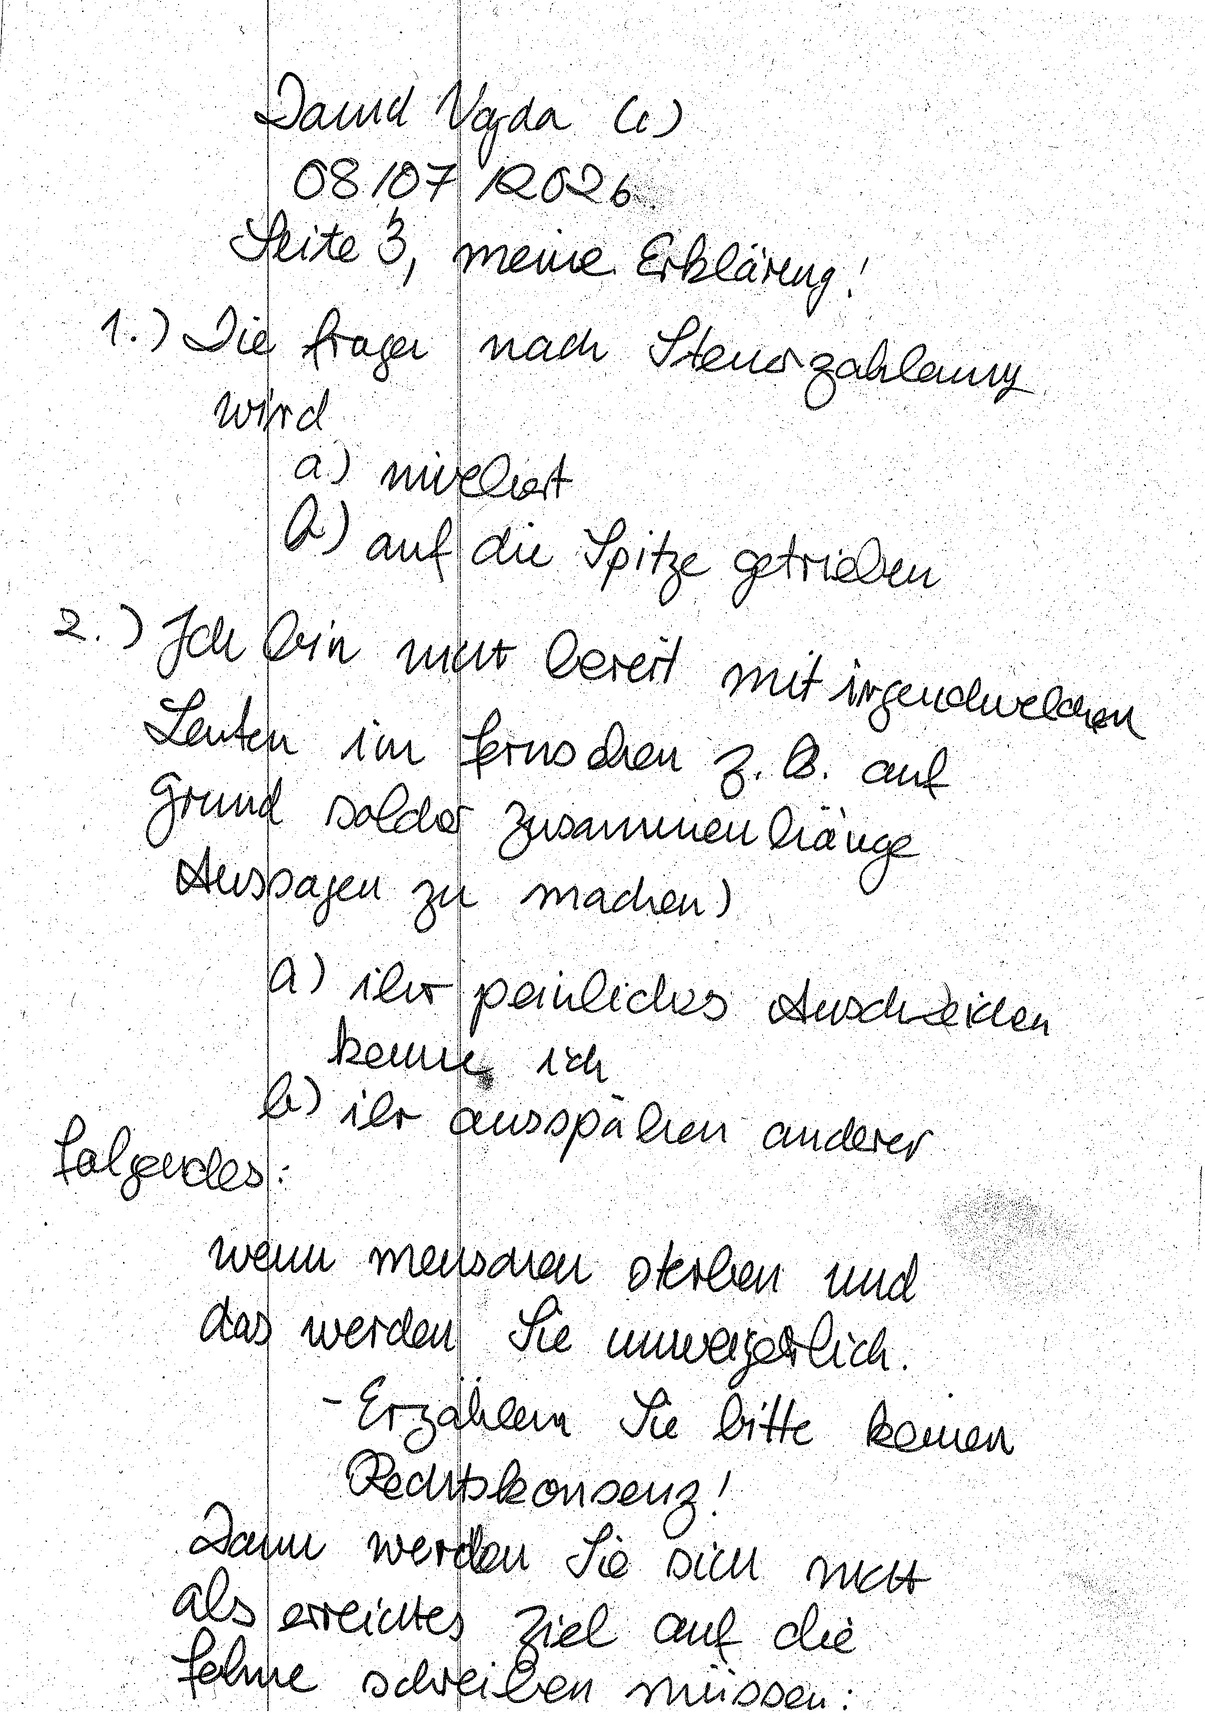 David Vajda (c)
08/07/2026
Seite 3, meine Erklärung!
1.) Die frage nach Steuerzahlung
wird
a) niveliert
b) auf die Spitze getrieben
2.) Ich bin nicht bereit mit irgendwelchen
Leuten im fernsehen z.B. auf
grund solcher zusammenhänge
Aussagen zu machen)
a) ihr peinliches Ausscheiden
kenne ich
b) ihr ausspähen anderer
folgendes:
wenn menschen sterben und
das werden Sie unweigerlich.
- Erzählen Sie bitte keinen
Rechtskonsenz!
Dann werden Sie sich nicht
als erreichtes ziel auf die
fahne schreiben müssen: